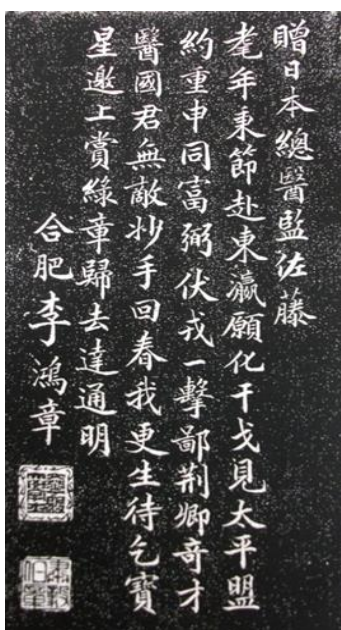 贈日本總醫監佐藤
耄年秉節赴東瀛願化干戈見太平盟
約重申同富弼伏戎一擊鄙荊卿奇才
醫國君無敵妙手回春我更生待乞寶
星邀上賞綠章歸去達通明
合肥李鴻章